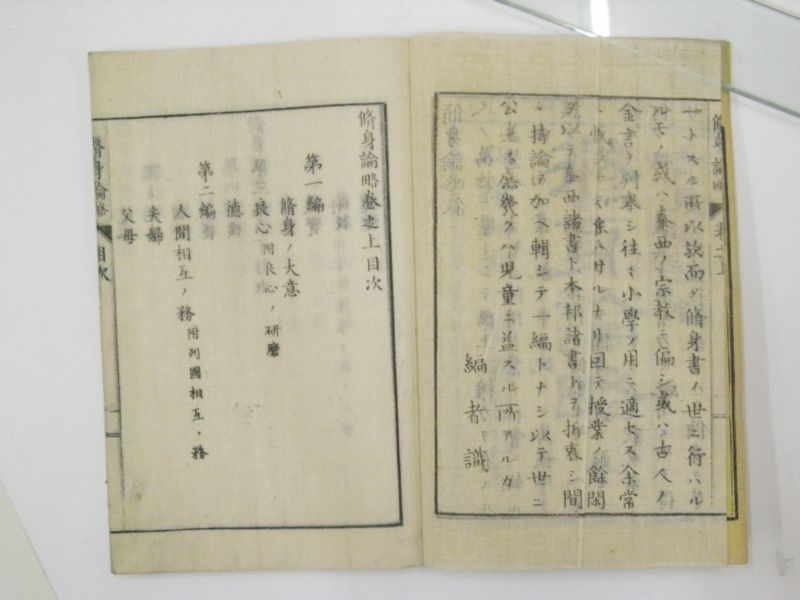 脩身論略 卷之上
サトスル所以ナリ而メ脩身書ノ世ニ行ハル
所モノ或ハ泰西ノ宗教ニ偏シ或ハ古人ノ
金言ヲ列擧シ往々小學ノ用ニ適セス余常
ニ慨ナキ能ハサルナリ因テ授業ノ餘閑
ヲ以テ泰西諸書ト本邦諸書トヲ折衷シ間
々持論ヲ加ヘ輯シテ一編トナシ以テ世ニ
公ニス庶幾クハ児童ニ益スル所アルカ
編者識
脩身論略卷之上目次
第一編
脩身ノ大意
良心 附良心ノ研磨
德
第二編
人間相互ノ務 附列國相互ノ務
夫婦
父母
脩身論略 目次